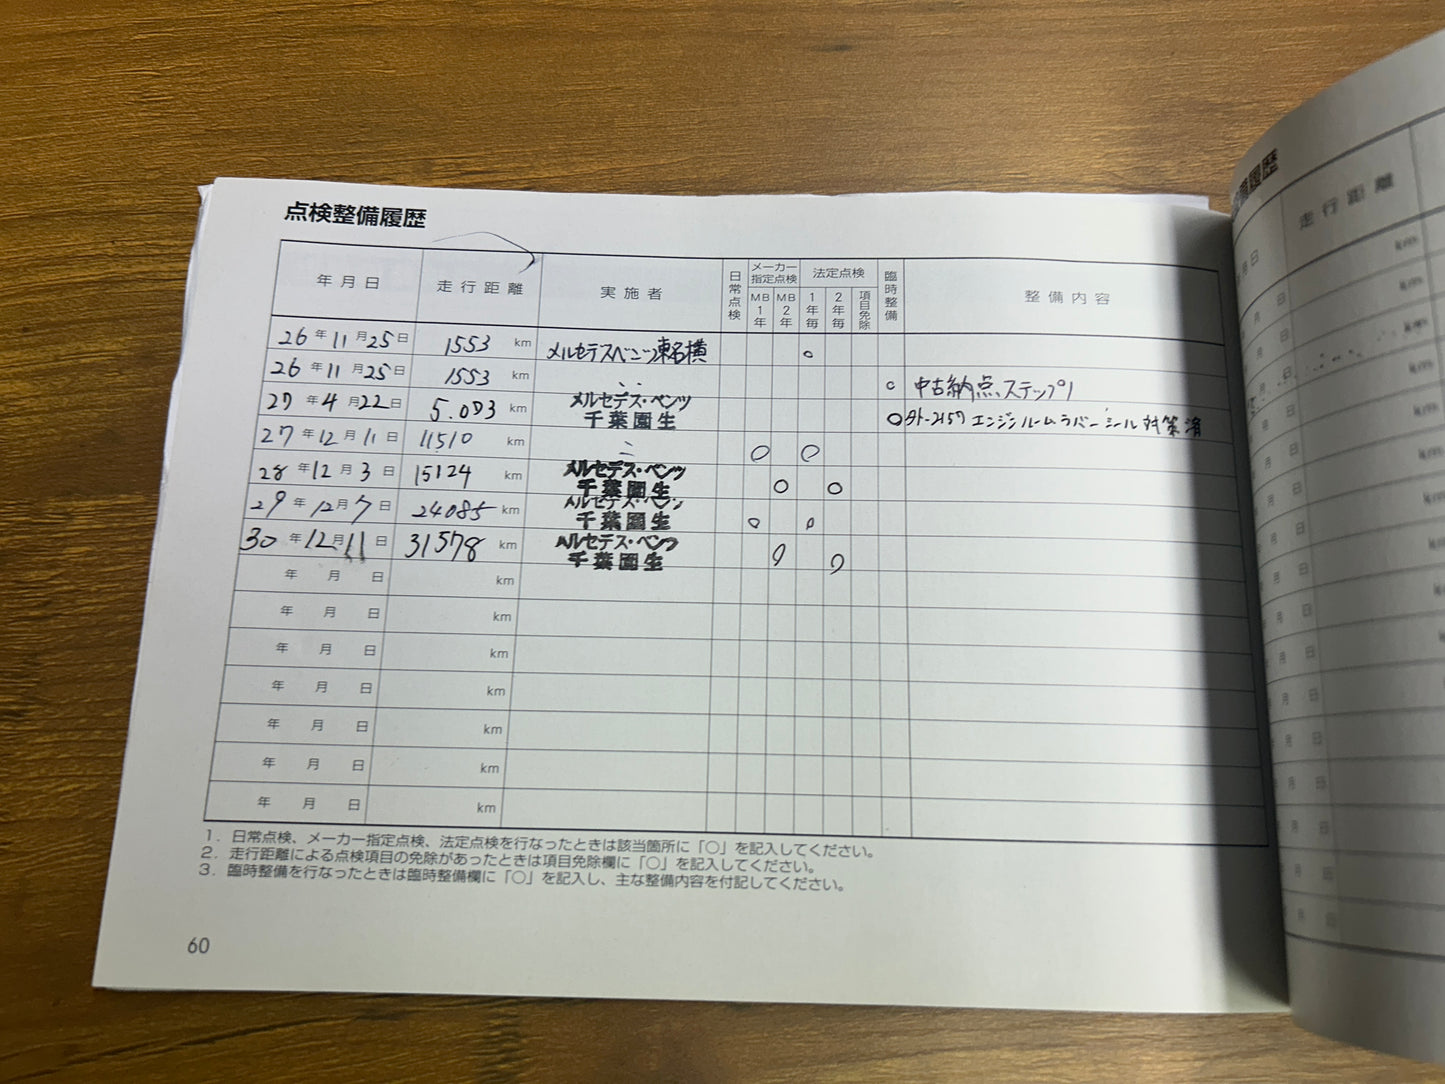 点検整備履歴
年月日 走行距離 実施者 日常点検 メーカー指定点検 MB1年 MB2年 法定点検 1年毎 2年毎 項目免除 臨時整備 整備内容
26年11月25日 1553 km メルセデスベンツ東名横 ○
26年11月25日 1553 km 〃 ○ 中古納点、ステップ1
27年4月22日 5.073 km メルセデス・ベンツ
千葉園生 ○ エンジンルームラバーシール対策済
27年12月11日 11510 km 〃 ○ ○
28年12月3日 15124 km メルセデス・ベンツ
千葉園生 ○ ○
29年12月7日 24085 km メルセデス・ベンツ
千葉園生 ○ ○
30年12月11日 31578 km メルセデス・ベンツ
千葉園生 ○ ○
年 月 日 km
年 月 日 km
年 月 日 km
年 月 日 km
年 月 日 km
年 月 日 km
年 月 日 km
1．日常点検、メーカー指定点検、法定点検を行なったときは該当箇所に「○」を記入してください。
2．走行距離による点検項目の免除があったときは項目免除欄に「○」を記入してください。
3．臨時整備を行なったときは臨時整備欄に「○」を記入し、主な整備内容を付記してください。
60
走行距離